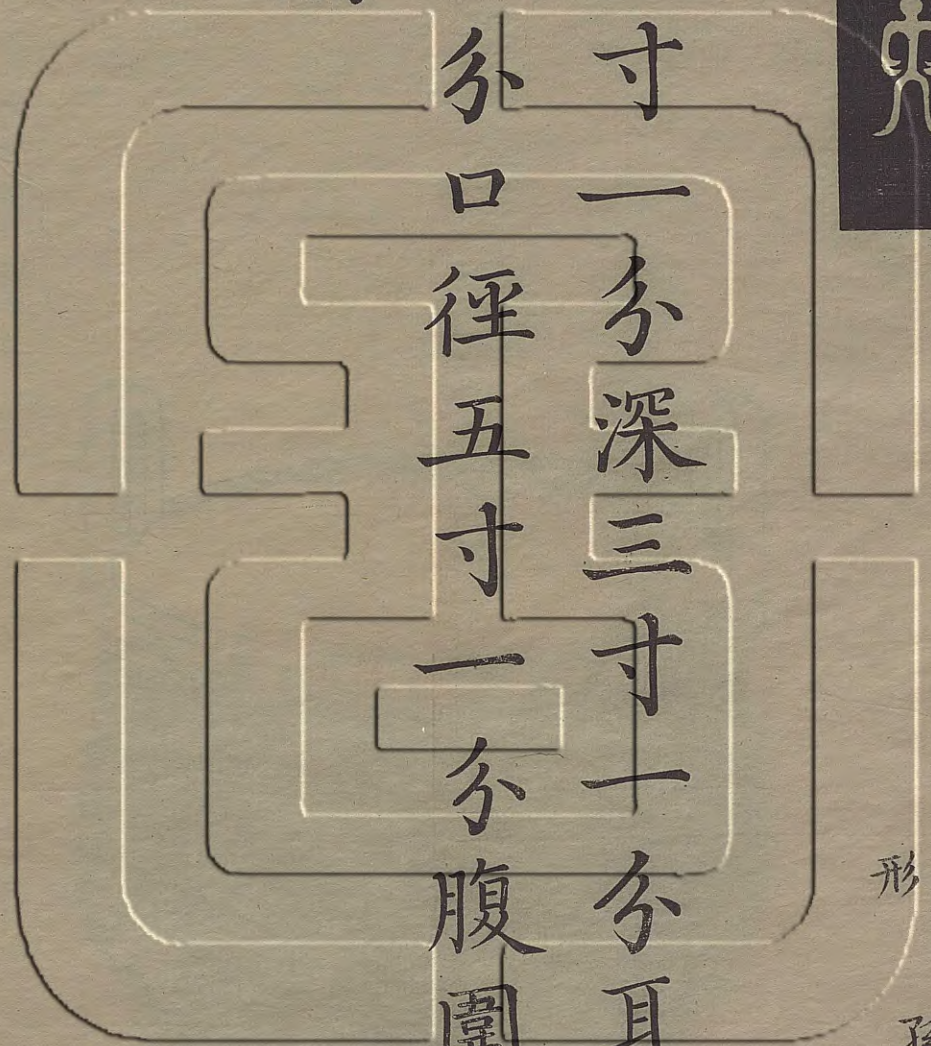 形
寸一分深三寸一分耳
分口徑五寸一分腹圍